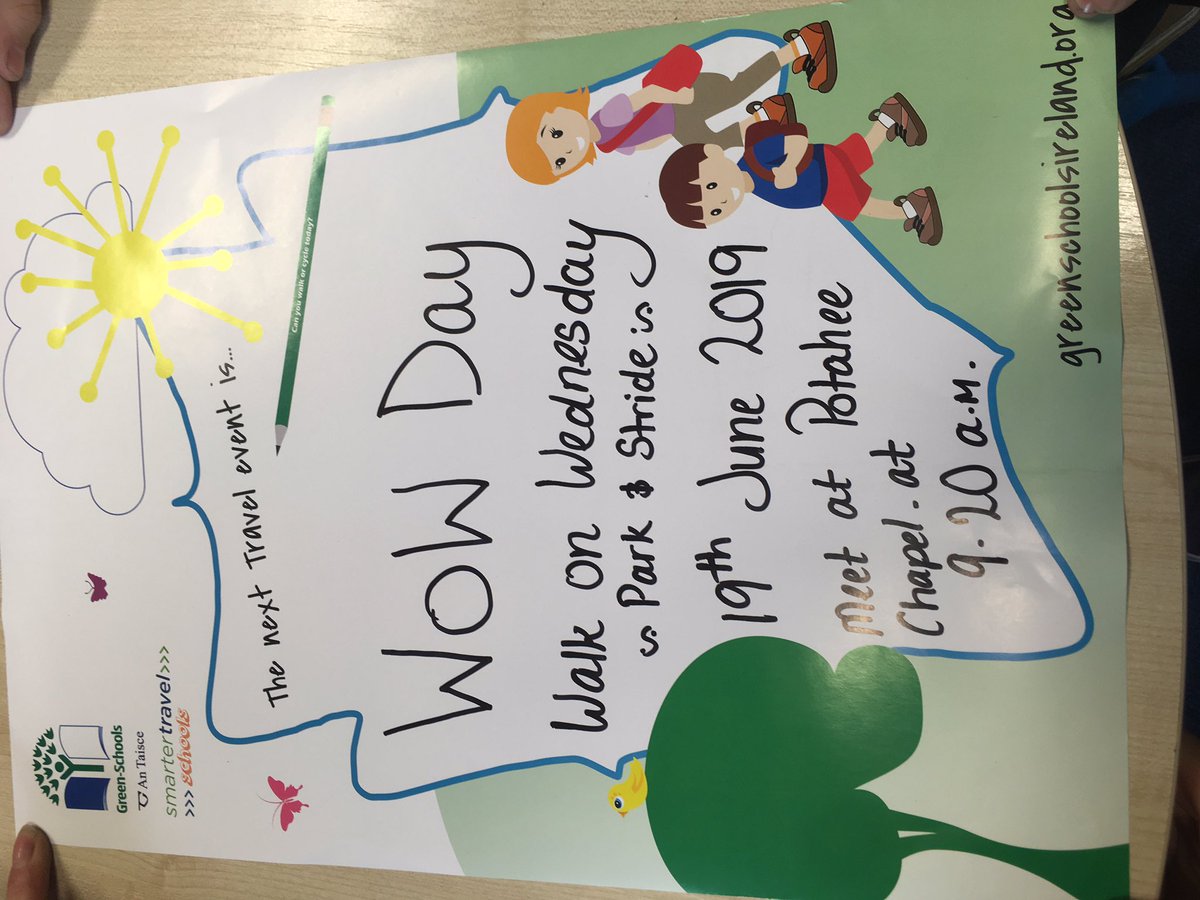 Green-Schools
An Taisce
smartertravel>>>
>>> schools
The next Travel event is...
Can you walk or cycle today?
WOW Day
Walk on Wednesday
~ Park & Stride ~
19th June 2019
Meet at Potahee
Chapel. at
9.20 a.m.
greenschoolsireland.org